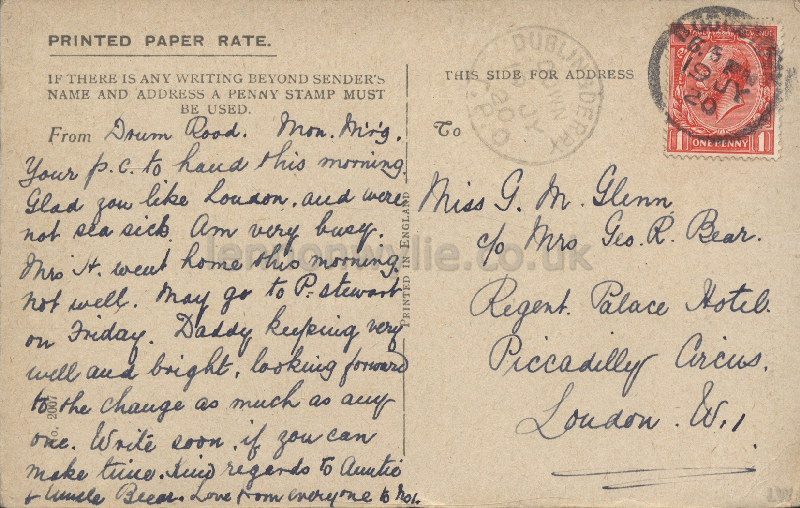 PRINTED PAPER RATE.
IF THERE IS ANY WRITING BEYOND SENDER'S
NAME AND ADDRESS A PENNY STAMP MUST
BE USED.
From Drum Road. Mon. Mn'g.
Your p.c. to hand this morning.
Glad you like London, and were
not sea sick. Am very busy.
Mrs H. went home this morning.
not well. May go to P. stewart
on Friday. Daddy keeping very
well and bright, looking forward
to the change as much as any
one. Write soon, if you can
make time. Kind regards to Auntie
& Uncle Bear. Love from everyone to
No. 2007
PRINTED IN ENGLAND
THIS SIDE FOR ADDRESS
To
Miss G. M. Glenn
c/o Mrs Geo. R. Bear.
Regent. Palace Hotel.
Piccadilly Circus.
London. W.1
DUBLIN & DERRY
JY
20
T.P.O
19 JY
20
ONE PENNY
1 1
lennonwylie.co.uk
LW